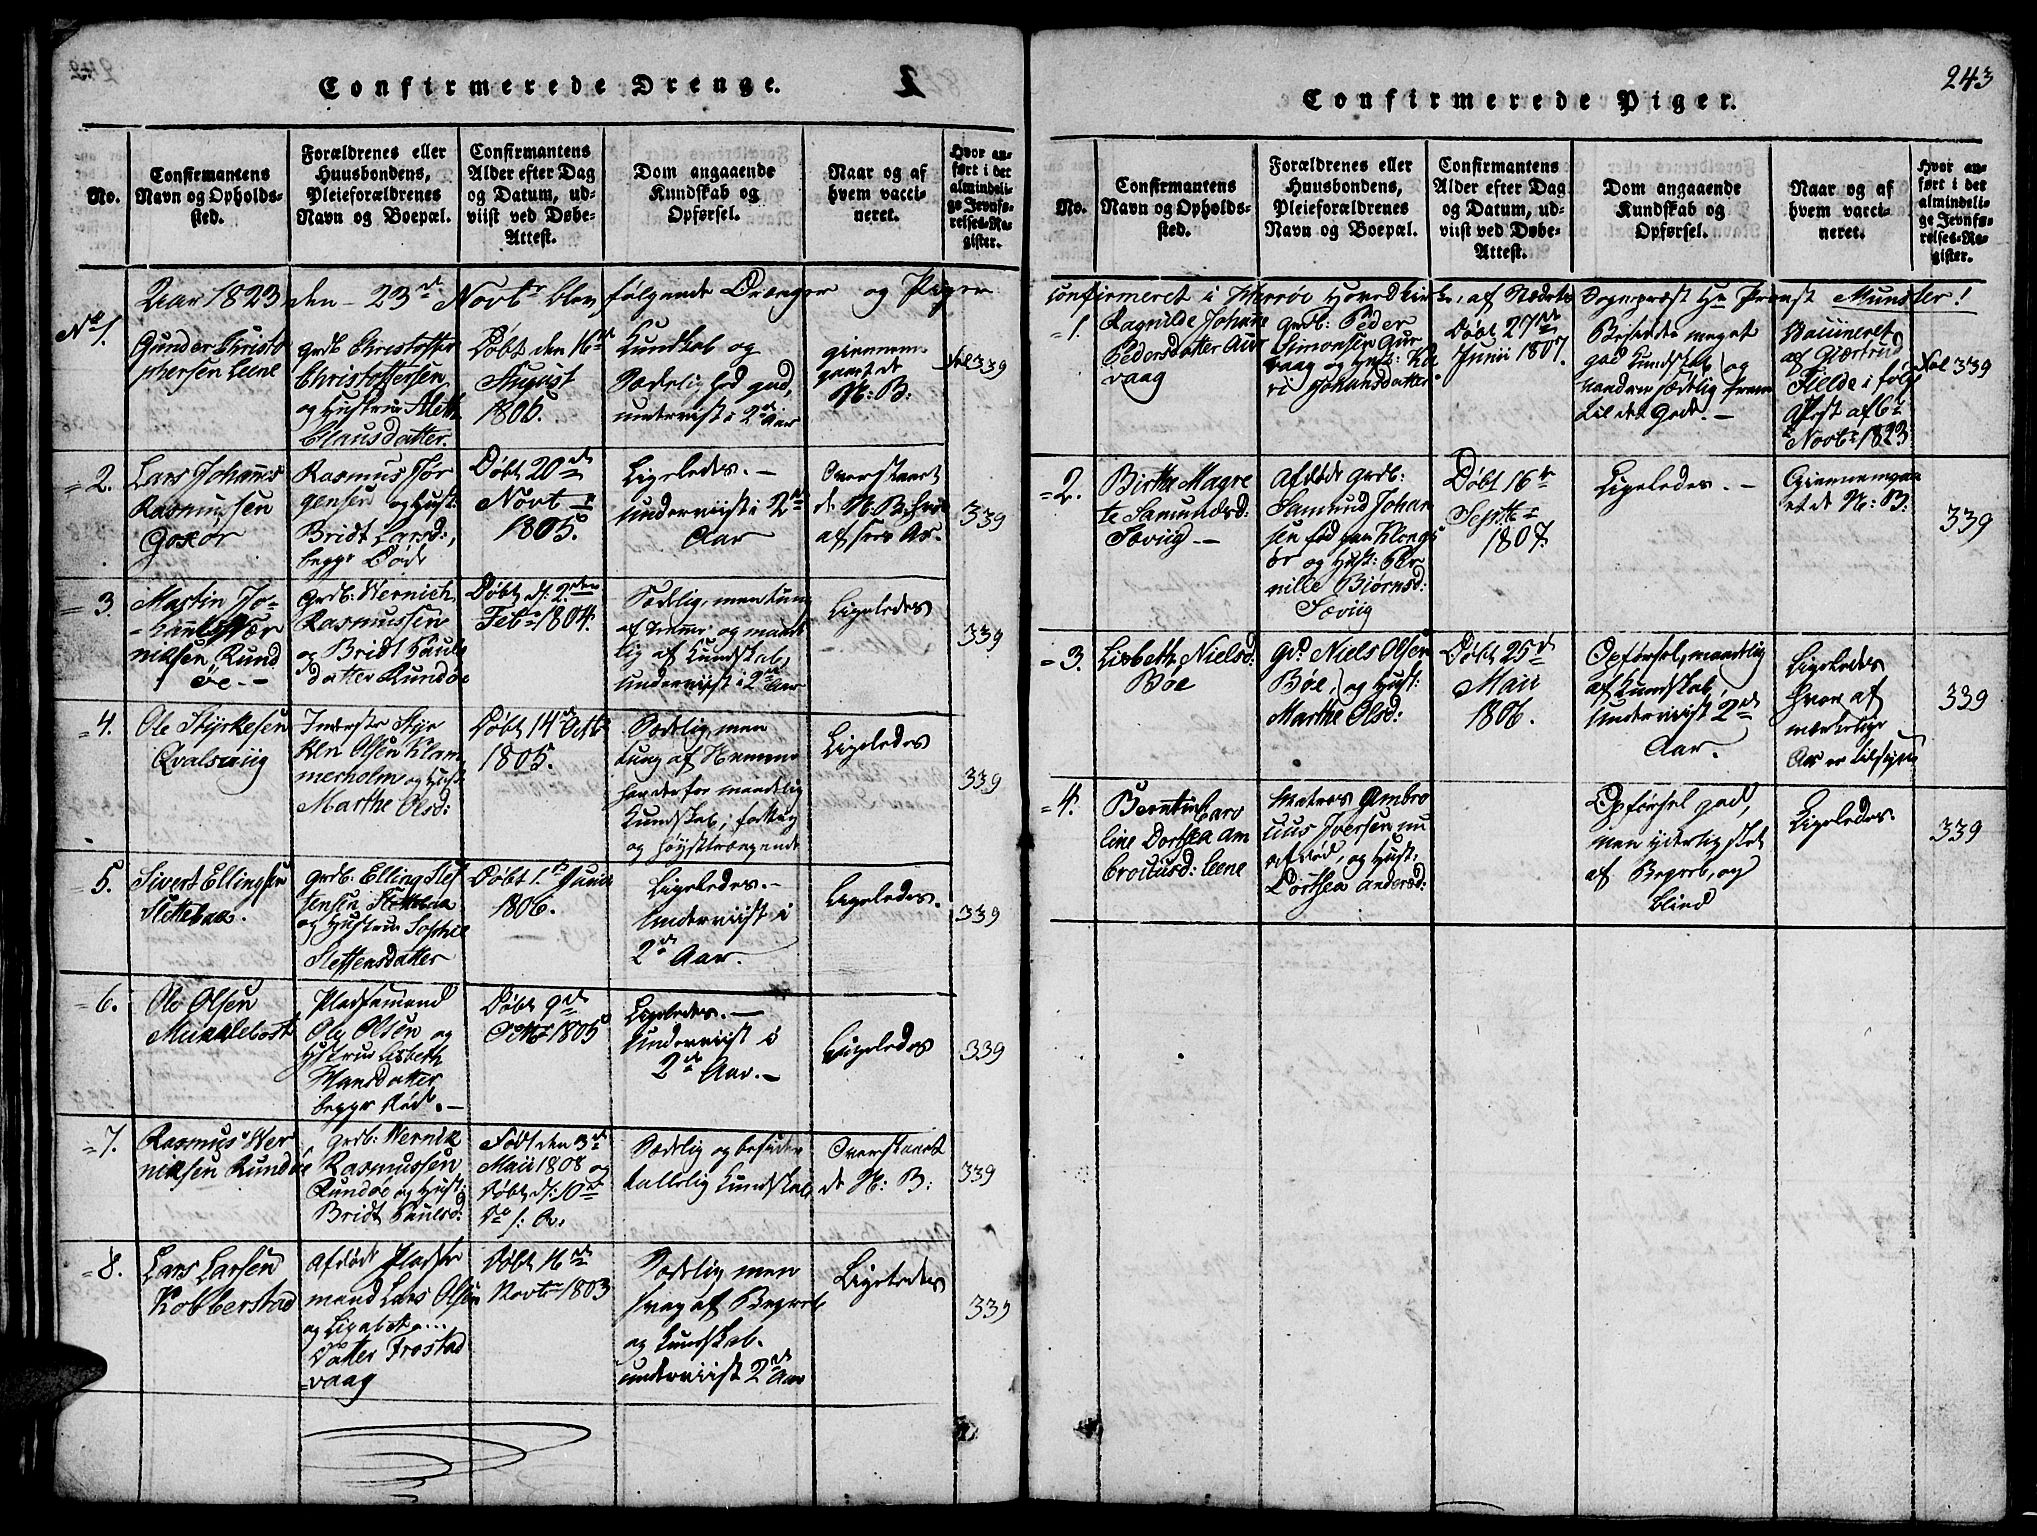 Confirmerede Drenge.
2
No.
Confirmantens
Navn og Opholds-
sted.
Forældrenes eller
Huusbondens,
Pleieforældrenes
Navn og Boepæl.
Confirmantens
Alder efter Dag
og Datum, ud-
viist ved Døbe-
Attest.
Dom angaaende
Kundskab og
Opførsel.
Naar og af
hvem vacci-
neret.
Hvor an-
ført i det
almindeli-
ge Jevnfø-
relses-Re-
gister.
Aar 1823 den 23de Novbr blev følgende Drenger og Piger
No 1.
Gunder Christo
phersen Leene
Grdb: Christoffer
Christoffersen
og Hustrue
Clausdatter
Døbt den 16de
August
1806.
Kundskab og
Sædelighed god,
underviist i 2de Aar
giennem
gaaet de
N: B:
339
= 2.
Lars Johannes
Rasmussen
Gosør
Rasmus Jør
gensen og Hust:
Bridt Larsd:,
begge Døde
Døbt 20de
Novbr
1805.
Ligeledes. –
Underviist i 2de
Aar
Overstaaet
de N: B:
339
= 3.
Martin Jo-
hannes Wer
niksen Rund
øe. –
Grdb: Wernich
Rasmussen
og Bridt Pauls
datter Rundøe
Døbt d: 2den
Feb 1804.
Sædelig, men tung
af Nemme og maade
lig af Kundskab,
Underviist i 2de Aar
Ligeledes
339
= 4.
Ole Styrkesen
Qvalsviig
Inderste Styr
ken Olsen Klam
merholm og Hust:
Marthe Olsd:
Døbt 14de Octbr
1805.
Sædelig, men
tung af Nemme
har derfor maadelig
Kundskab, fattig
og høysttrængende
Ligeledes
339
= 5.
Sivert Ellingsen
Flettebae.
Grdb: Elling Stef
fensen
og Hustrue Sophie
Steffensdatter
Døbt 1ste Junii
1806.
Ligeledes. –
Underviist i
2de Aar.
Ligeledes.
339
= 6.
Ole Olsen
Mikkelbost
Pladsemand
Ole Olsen og
Hstrue Lisbeth
Hansdatter
begge Døde. –
Døbt 9de
Octbr 1805
Ligeledes. –
Underviist i
2de Aar. –
Ligeledes
339
= 7.
Rasmus Wer
niksen Rundøe
Grdb: Wernik
Rasmussen
Rundøe og Hust:
Bridt Paulsd:
Født den 3de
Maii 1808 og
Døbt d: 10de
Do s: A:
Sædelig og besidder
taalelig Kundskab
Overstaaet
de N: B:
339
= 8.
Lars Larsen
Kobberstad
Afdøde Pladse
mand Lars Olsen
og
Datter Frostad
=vaag
Døbt 16de
Novbr 1803
Sædelig men
svag af Begreb
og Kundskab.
underviist 2de Aar
Ligeledes
339
243
Confirmerede Piger.
No.
Confirmantens
Navn og Opholds-
sted.
Forældrenes eller
Huusbondens,
Pleieforældrenes
Navn og Boepæl.
Confirmantens
Alder efter Dag
og Datum, ud-
viist ved Døbe-
Attest.
Dom angaaende
Kundskab og
Opførsel.
Naar og af
hvem vacci-
neret.
Hvor an-
ført i det
almindeli-
ge Jevnfø-
relses-Re-
gister.
confirmeret i Herrøe Hovedkirke, af Stædets Sognepræst Hr Provst Munster!
= 1.
Ragnilde Johanne
Pedersdatter Aur
vaag
Grdb: Peder
Simonsen Aur
vaag og Hust: Ka
ri Johansdatter
Døbt 27de
Junii 1807.
Besidder meget
god Kundskab og
Sædelig
til det Gode. –
Vaccineret
af Giertrud
Fielde i følge
Attest af 6te
Novbr 1823
Fol 339
= 2.
Birthe Magre
te Samundsd:
Sæviig –
Afdøde Grdb:
Samund Johan
sen fød paa Klongs
ør og Hust: Per
nille Bjørnsd:
Sæviig
Døbt 16de
Septbr
1807.
Ligeledes. –
Giennemgaa
et de N: B:
339
= 3.
Lisbeth Nielsd:
Bøe
Gr: Niels Olsen
Bøe, og Hust:
Marthe Olsd:
Døbt 25de
Maii
1806.
Opførsel, maadelig
af Kundskab,
Underviist 2de
Aar.
Ligeledes
hvor af
mærkelige
Ar er tilsyne
339
= 4.
Berntine Caro
line Dorthea Am
brosiusd: Leene
Matros Ambro
sius Iversen nu
afdød, og Hust:
Dorthea Andersd:
Opførsel god,
men yderlig slet
af Begreb, og
blind
Ligeledes
339